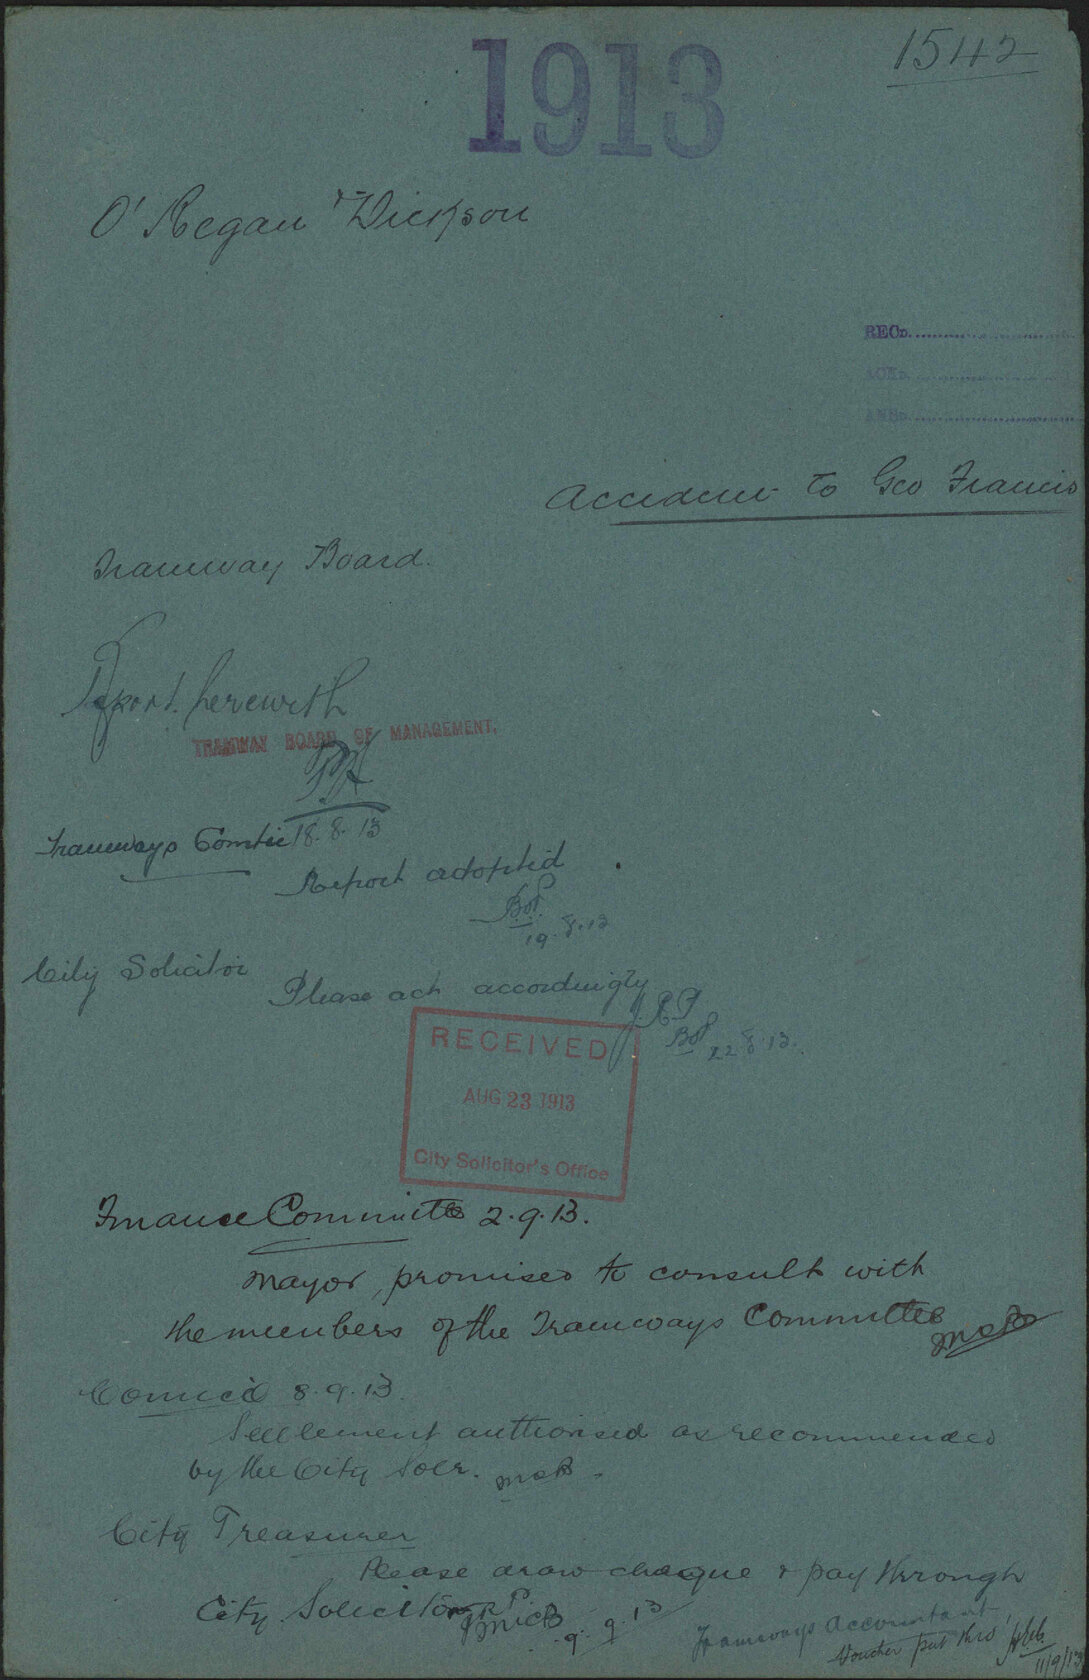 1913
15112
O'Regan & Dickson
RECD.
ACKD.
ANSD.
Accident to Geo Francis
Tramway Board.
Report herewith
TRAMWAY BOARD OF MANAGEMENT.
18.8.13
Tramways Comtee
Report adopted
19.8.13
City Solicitor
Please act accordingly
22.8.13.
RECEIVED
AUG 23 1913
City Solicitor's Office
Finance Committee 2.9.13.
Mayor promised to consult with
the members of the Tramways Committee
Council 8.9.13.
Settlement authorised as recommended
by the City Solr.
City Treasurer
Please draw cheque & pay through
City Solicitor
9.9.13
Tramways Accountant
Voucher put thro'
11/9/13